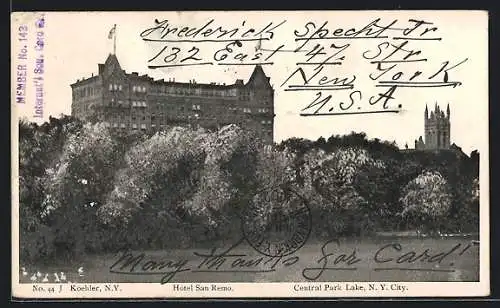 MEMBER No. 143
Internat'l Sou. Card Ex.
Frederick Specht Jr
182 East 47. Str
New York
N.S.A.
Many Thanks for Card!
No. 44 J Koehler, N.Y. Hotel San Remo. Central Park Lake, N. Y. City.